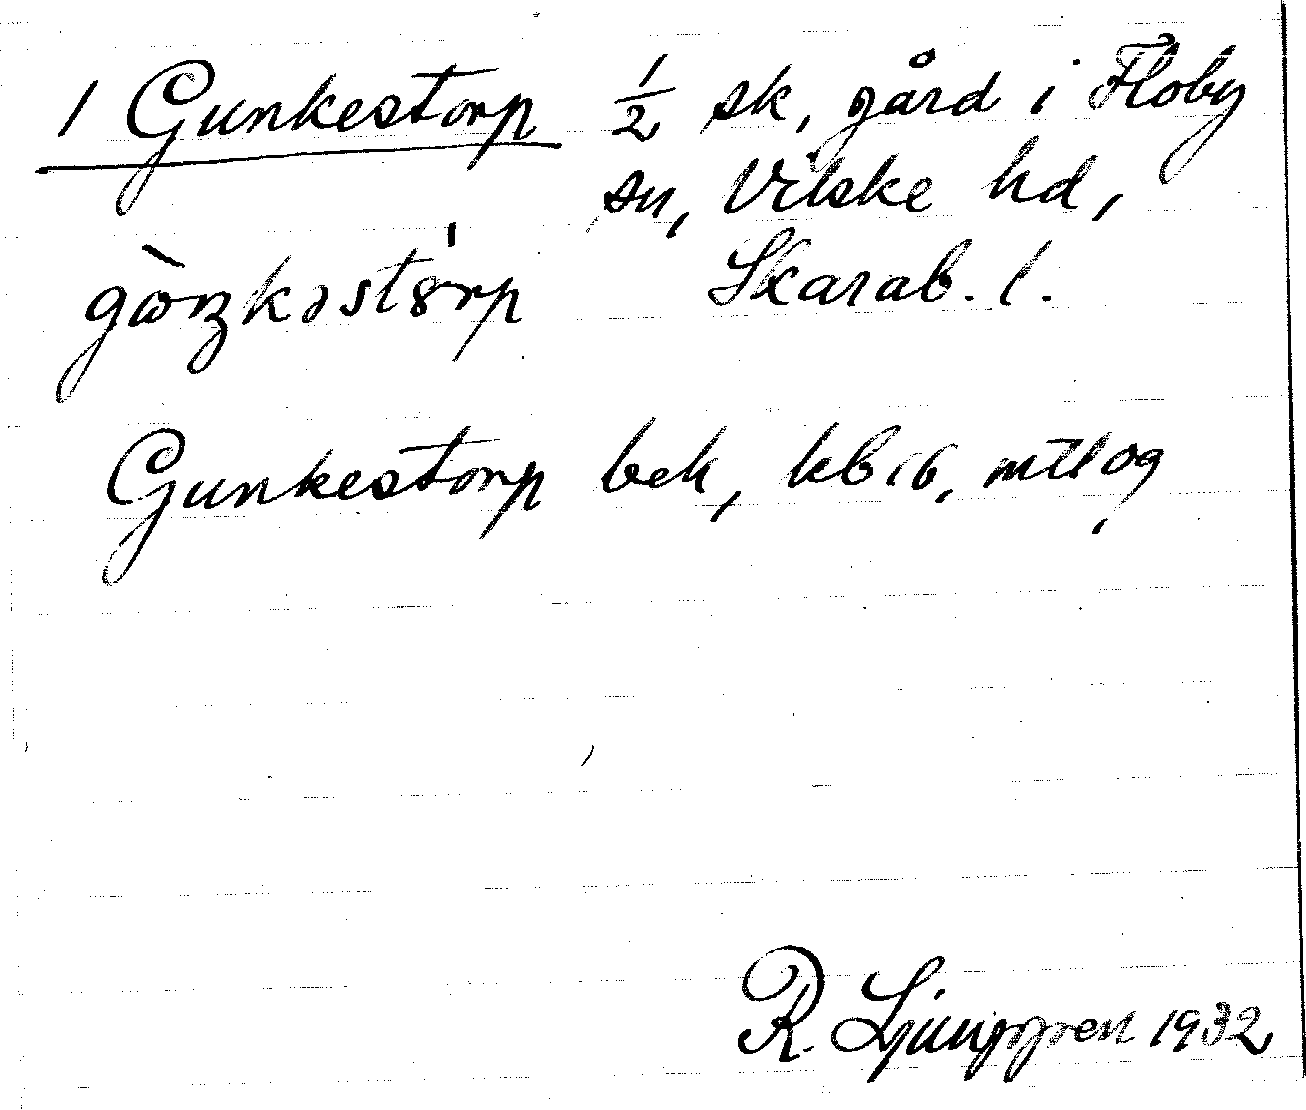 1 Gunkestorp ½ sk, gård i Floby
sn, Vilske hd,
Skarab. l.
Gunkestorp bek, kb 16, mtl og
R. Ljunggren 1932